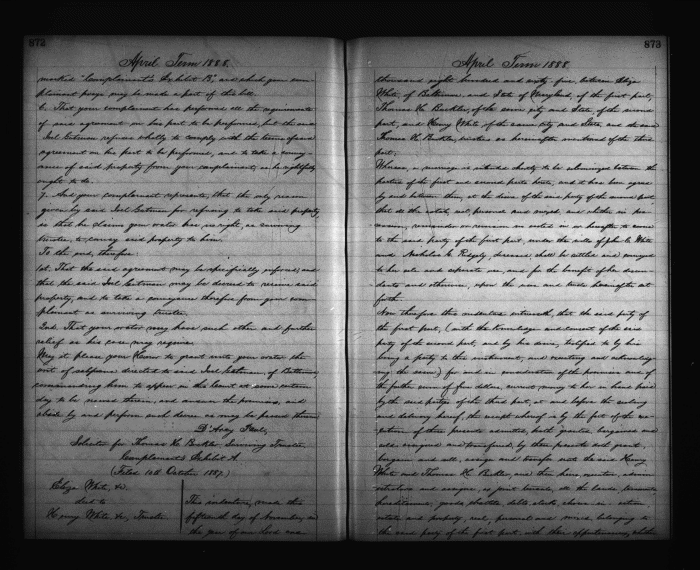 872
April Term 1888.
marked "Complainant's Exhibit B", and which your com-
plainant prays may be made a part of this bill.
6. That your complainant has performed all the requirements
of said agreement on his part to be performed, but the said
Joel Gutman refuses wholly to comply with the terms of said
agreement on his part to be performed, and to take a convey-
ance of said property from your complainant, as he rightfully
ought to do.
7. And your complainant represents, that the only reason
given by said Joel Gutman for refusing to take said property
is that he claims your orator has no right, as surviving
trustee, to convey said property to him.
To the end, therefore:
1st. That the said agreement may be specifically enforced, and
that the said Joel Gutman may be decreed to receive said
property, and to take a conveyance therefor from your com-
plainant as surviving trustee.
2nd. That your orator may have such other and further
relief as his case may require.
May it please your Honor to grant unto your orator the
writ of subpoena directed to said Joel Gutman, of Baltimore,
commanding him to appear in the Court at some certain
day to be named therein, and answer the premises, and
abide by and perform such decree as may be passed therein
D'Arcy Paul,
Solicitor for Thomas H. Buckler Surviving Trustee.
Complainant's Exhibit A
(Filed 10th October 1887.)
Eliza White, &c
deed to
Henry White &c, Trustees
This indenture, made this
fifteenth day of November, in
the year of our Lord one
873
April Term 1888.
thousand eight hundred and sixty-five, between Eliza
White, of Baltimore, and State of Maryland, of the first part,
Thomas H. Buckler, of the same city and State, of the second
part, and Henry White of the same city and State, and the said
Thomas H. Buckler, trustees as hereinafter mentioned of the third
part.
Whereas, a marriage is intended shortly to be solemnized between the
parties of the first and second parts hereto, and it has been agreed
by and between them, at the desire of the said party of the second part,
that all the estate, real, personal and mixed, and whether in pos-
session, remainder or reversion or vested in or hereafter to come
to the said party of the first part, under the wills of John C. White
and Nicholas G. Ridgely, deceased, shall be settled and conveyed
to her sole and separate use, and for the benefit of her descen-
dants and otherwise, upon the uses and trusts hereinafter set
forth.
Now therefore this indenture witnesseth, that the said party of
the first part, (with the knowledge and consent of the said
party of the second part, and by his desire, testified to by his
being a party to this instrument, and executing and acknowledg-
ing the same) for and in consideration of the premises and of
the further sum of five dollars, current money to her in hand paid
by the said parties of the third part, at and before the sealing
and delivery hereof, the receipt whereof is by the first of the ex-
ecution of these presents admitted, hath granted, bargained and
sold, assigned and transferred, by these presents doth grant,
bargain and sell, assign and transfer unto the said Henry
White and Thomas H. Buckler, and their heirs, executors, admin-
istrators and assigns, as joint tenants, all the lands, tenements,
hereditaments, goods, chattels, debts, stocks, choses in action
estate and property, real, personal and mixed, belonging to
the said party of the first part, with their appurtenances, whether